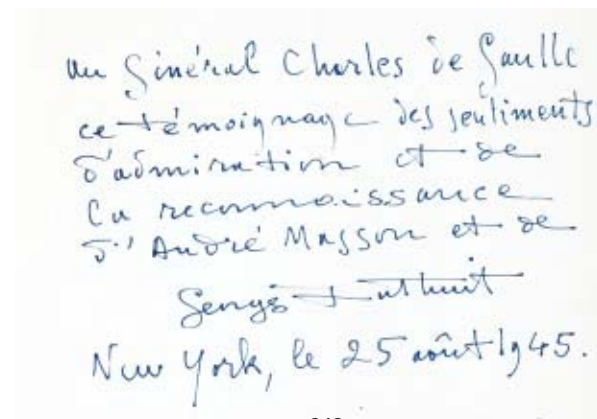 au Général Charles de Gaulle
ce témoignage des sentiments
d'admiration et de
la reconnaissance
d'André Masson et de
Georges Duthuit
New York, le 25 août 1945.